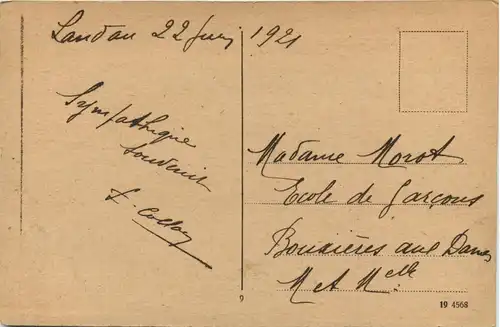 Landau 22 Juin 1921
Sympathique
souvenir
Madame Morot
Ecole de Garçons
Bouxières aux Dames
M et Melle
9
19 4568